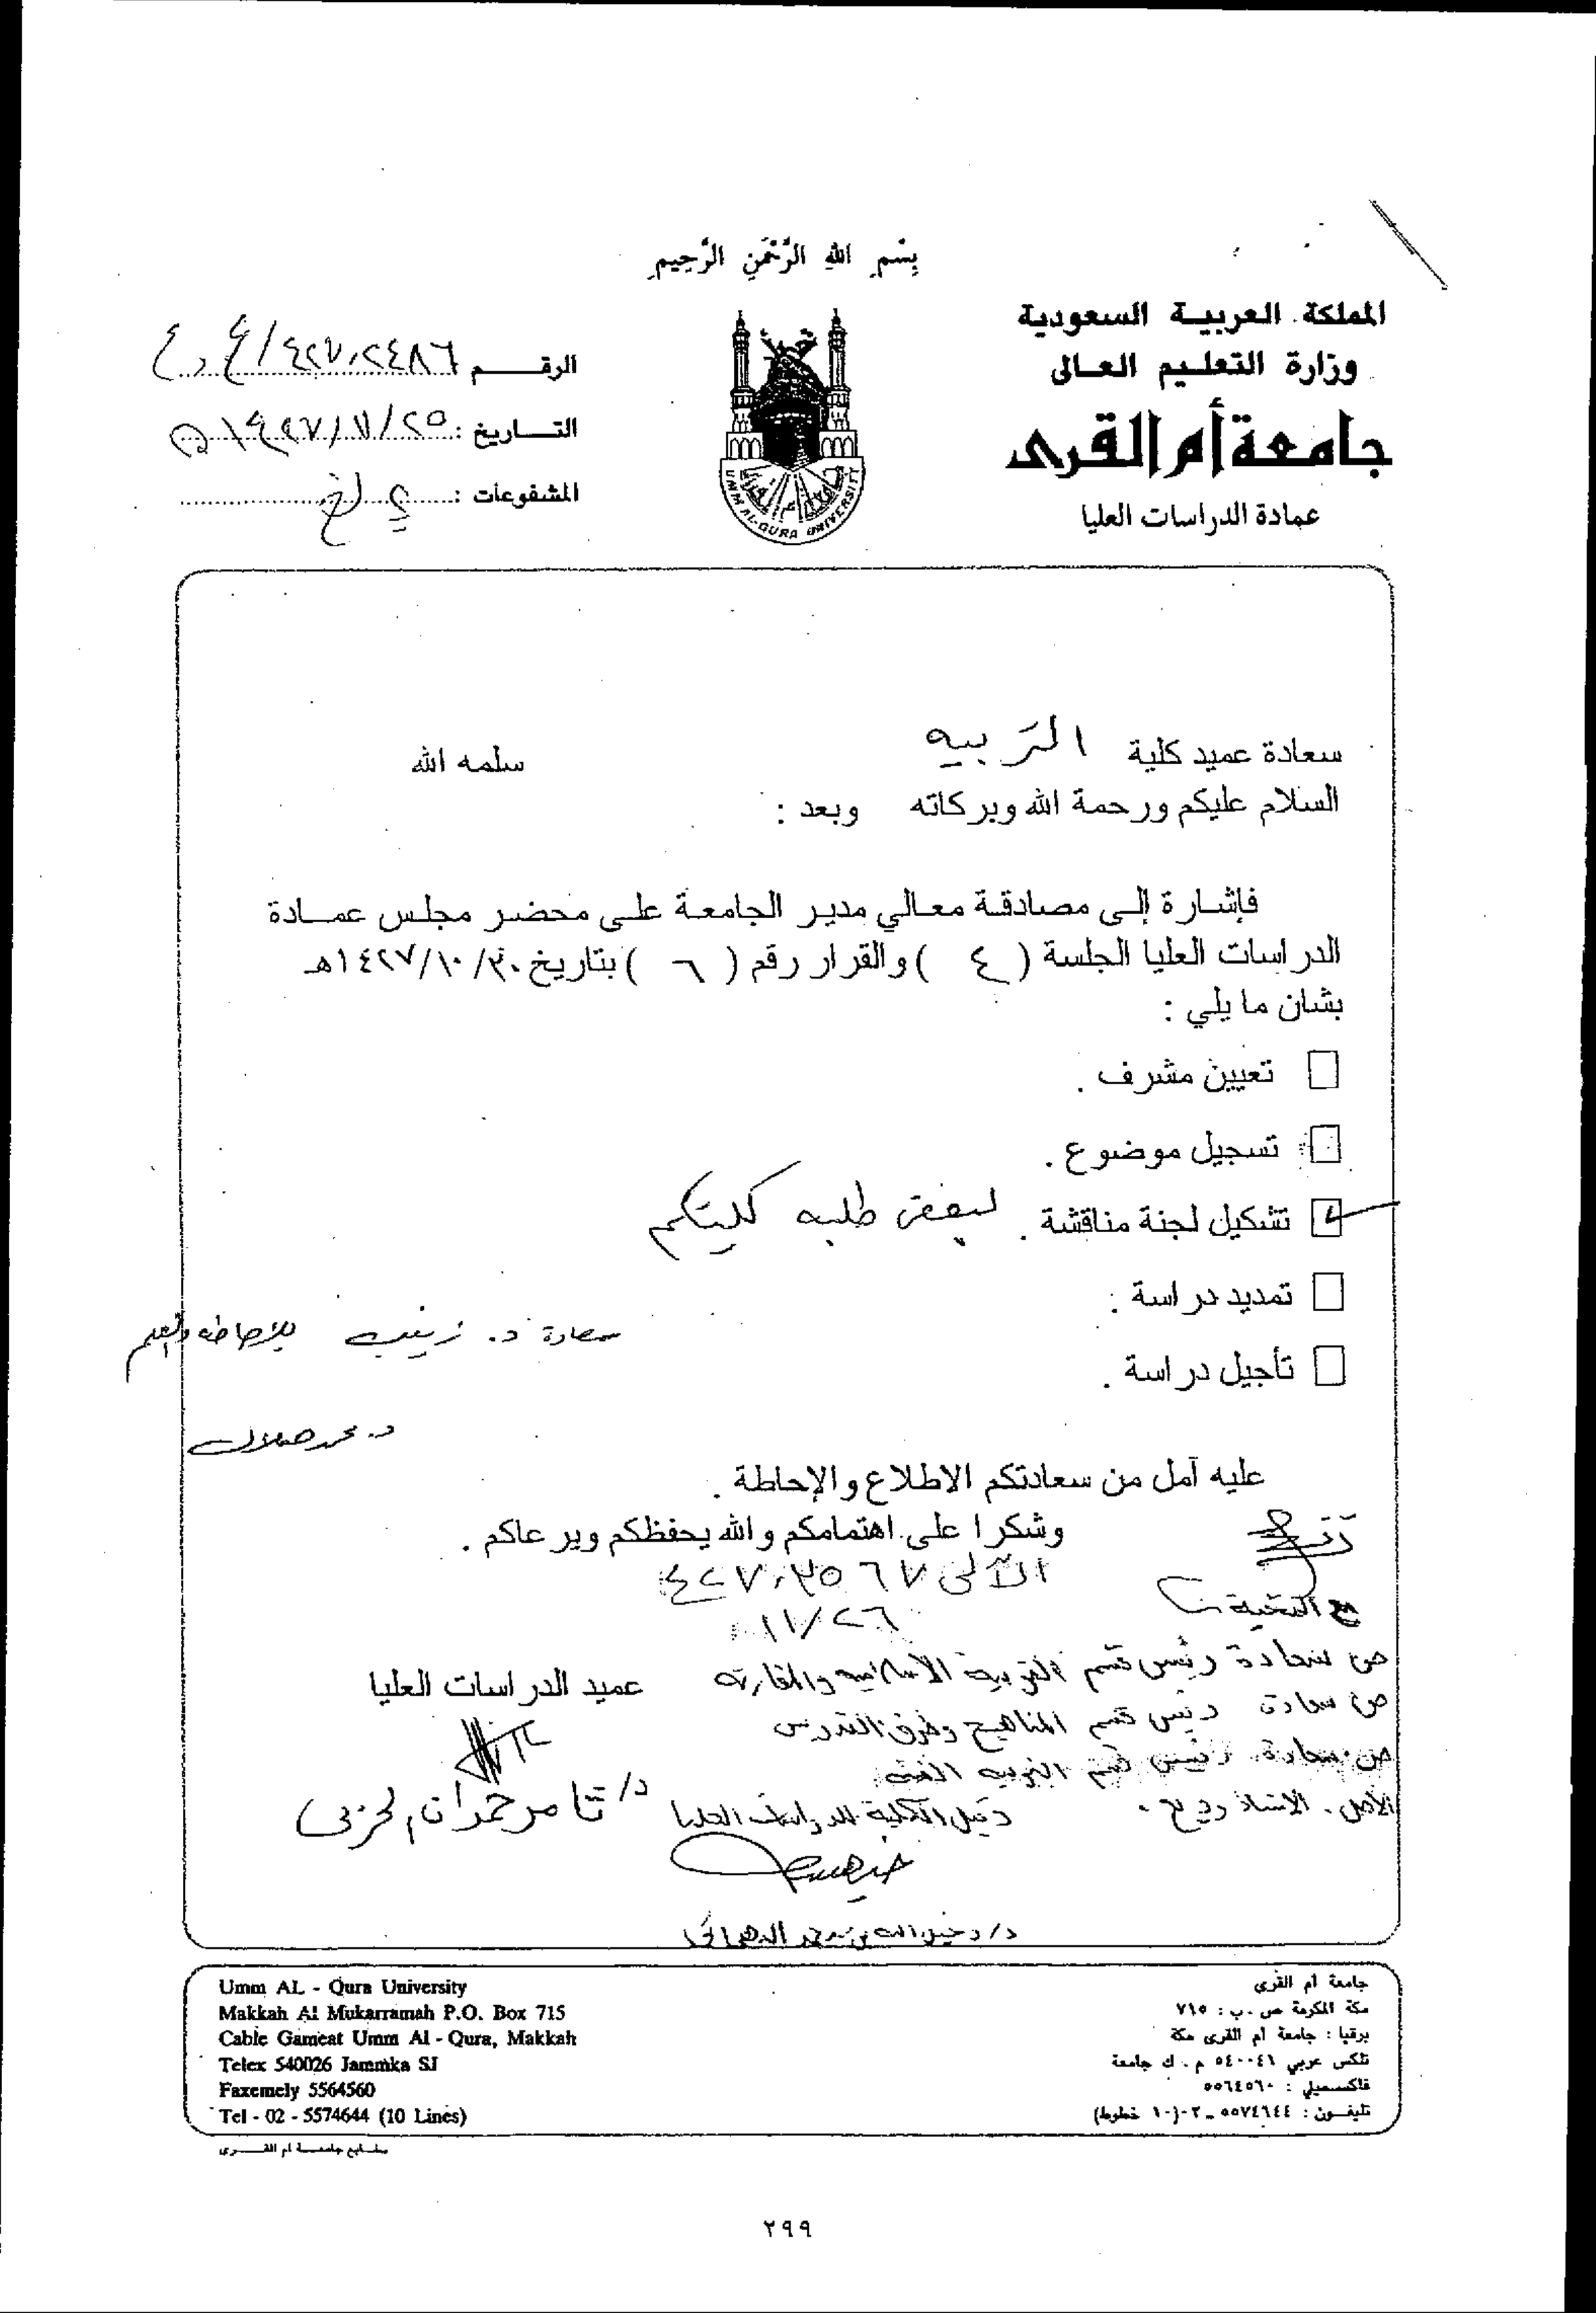 بِسْمِ اللهِ الرَّحْمَنِ الرَّحِيمِ
المملكة العربية السعودية
وزارة التعليم العالى
جامعة أم القرى
عمادة الدراسات العليا
الرقم ٤٢٧٠٢٤٨٦/ع د ع
التاريخ : ٢٥/ /١٤٢٧هـ
المشفوعات :
UMM AL-QURA UNIVERSITY
سعادة عميد كلية التربيه سلمه الله
السلام عليكم ورحمة الله وبركاته وبعد :
فإشارة إلى مصادقة معالي مدير الجامعة على محضر مجلس عمادة
الدراسات العليا الجلسة ( ٤ ) والقرار رقم ( ٦ ) بتاريخ ٣٠/١٠/١٤٢٧هـ
بشان ما يلي :
تعيين مشرف .
تسجيل موضوع .
تشكيل لجنة مناقشة . لبعض طلبه كليتكم
تمديد دراسة :
سعادة د. زينب للإحاطه والعلم
تأجيل دراسة .
د. محمد
عليه آمل من سعادتكم الاطلاع والإحاطة .
وشكرا على اهتمامكم والله يحفظكم ويرعاكم .
الآلى ٤٢٧٠٣٥٦٧
١١/٢٦
مع التحية
ص سعادة رئيس قسم التربية الاسلاميه والمقارنه
عميد الدراسات العليا
ص سعادة رئيس قسم المناهج وطرق التدريس
ص سعادة رئيس قسم التربيه الفنيه
الأصل . الاستاذ
وكيل الكلية للدراسات العليا
د/ ثامر حمدان الحربي
د/ دخيل الله بن محمد الدهماني
Umm AL - Qura University
Makkah Al Mukarramah P.O. Box 715
Cable Gameat Umm Al - Qura, Makkah
Telex 540026 Jammka SJ
Faxemely 5564560
Tel - 02 - 5574644 (10 Lines)
جامعة أم القرى
مكة المكرمة ص .ب : ٧١٥
برقيا : جامعة أم القرى مكة
تلكس عربي ٥٤٠٠٤١ م . ك جامعة
فاكسميلي : ٥٥٦٤٥٦٠
تليفون : ٥٥٧٤٦٤٤ - ٠٢ (١٠ خطوط)
مطابع جامعة أم القرى
٢٩٩